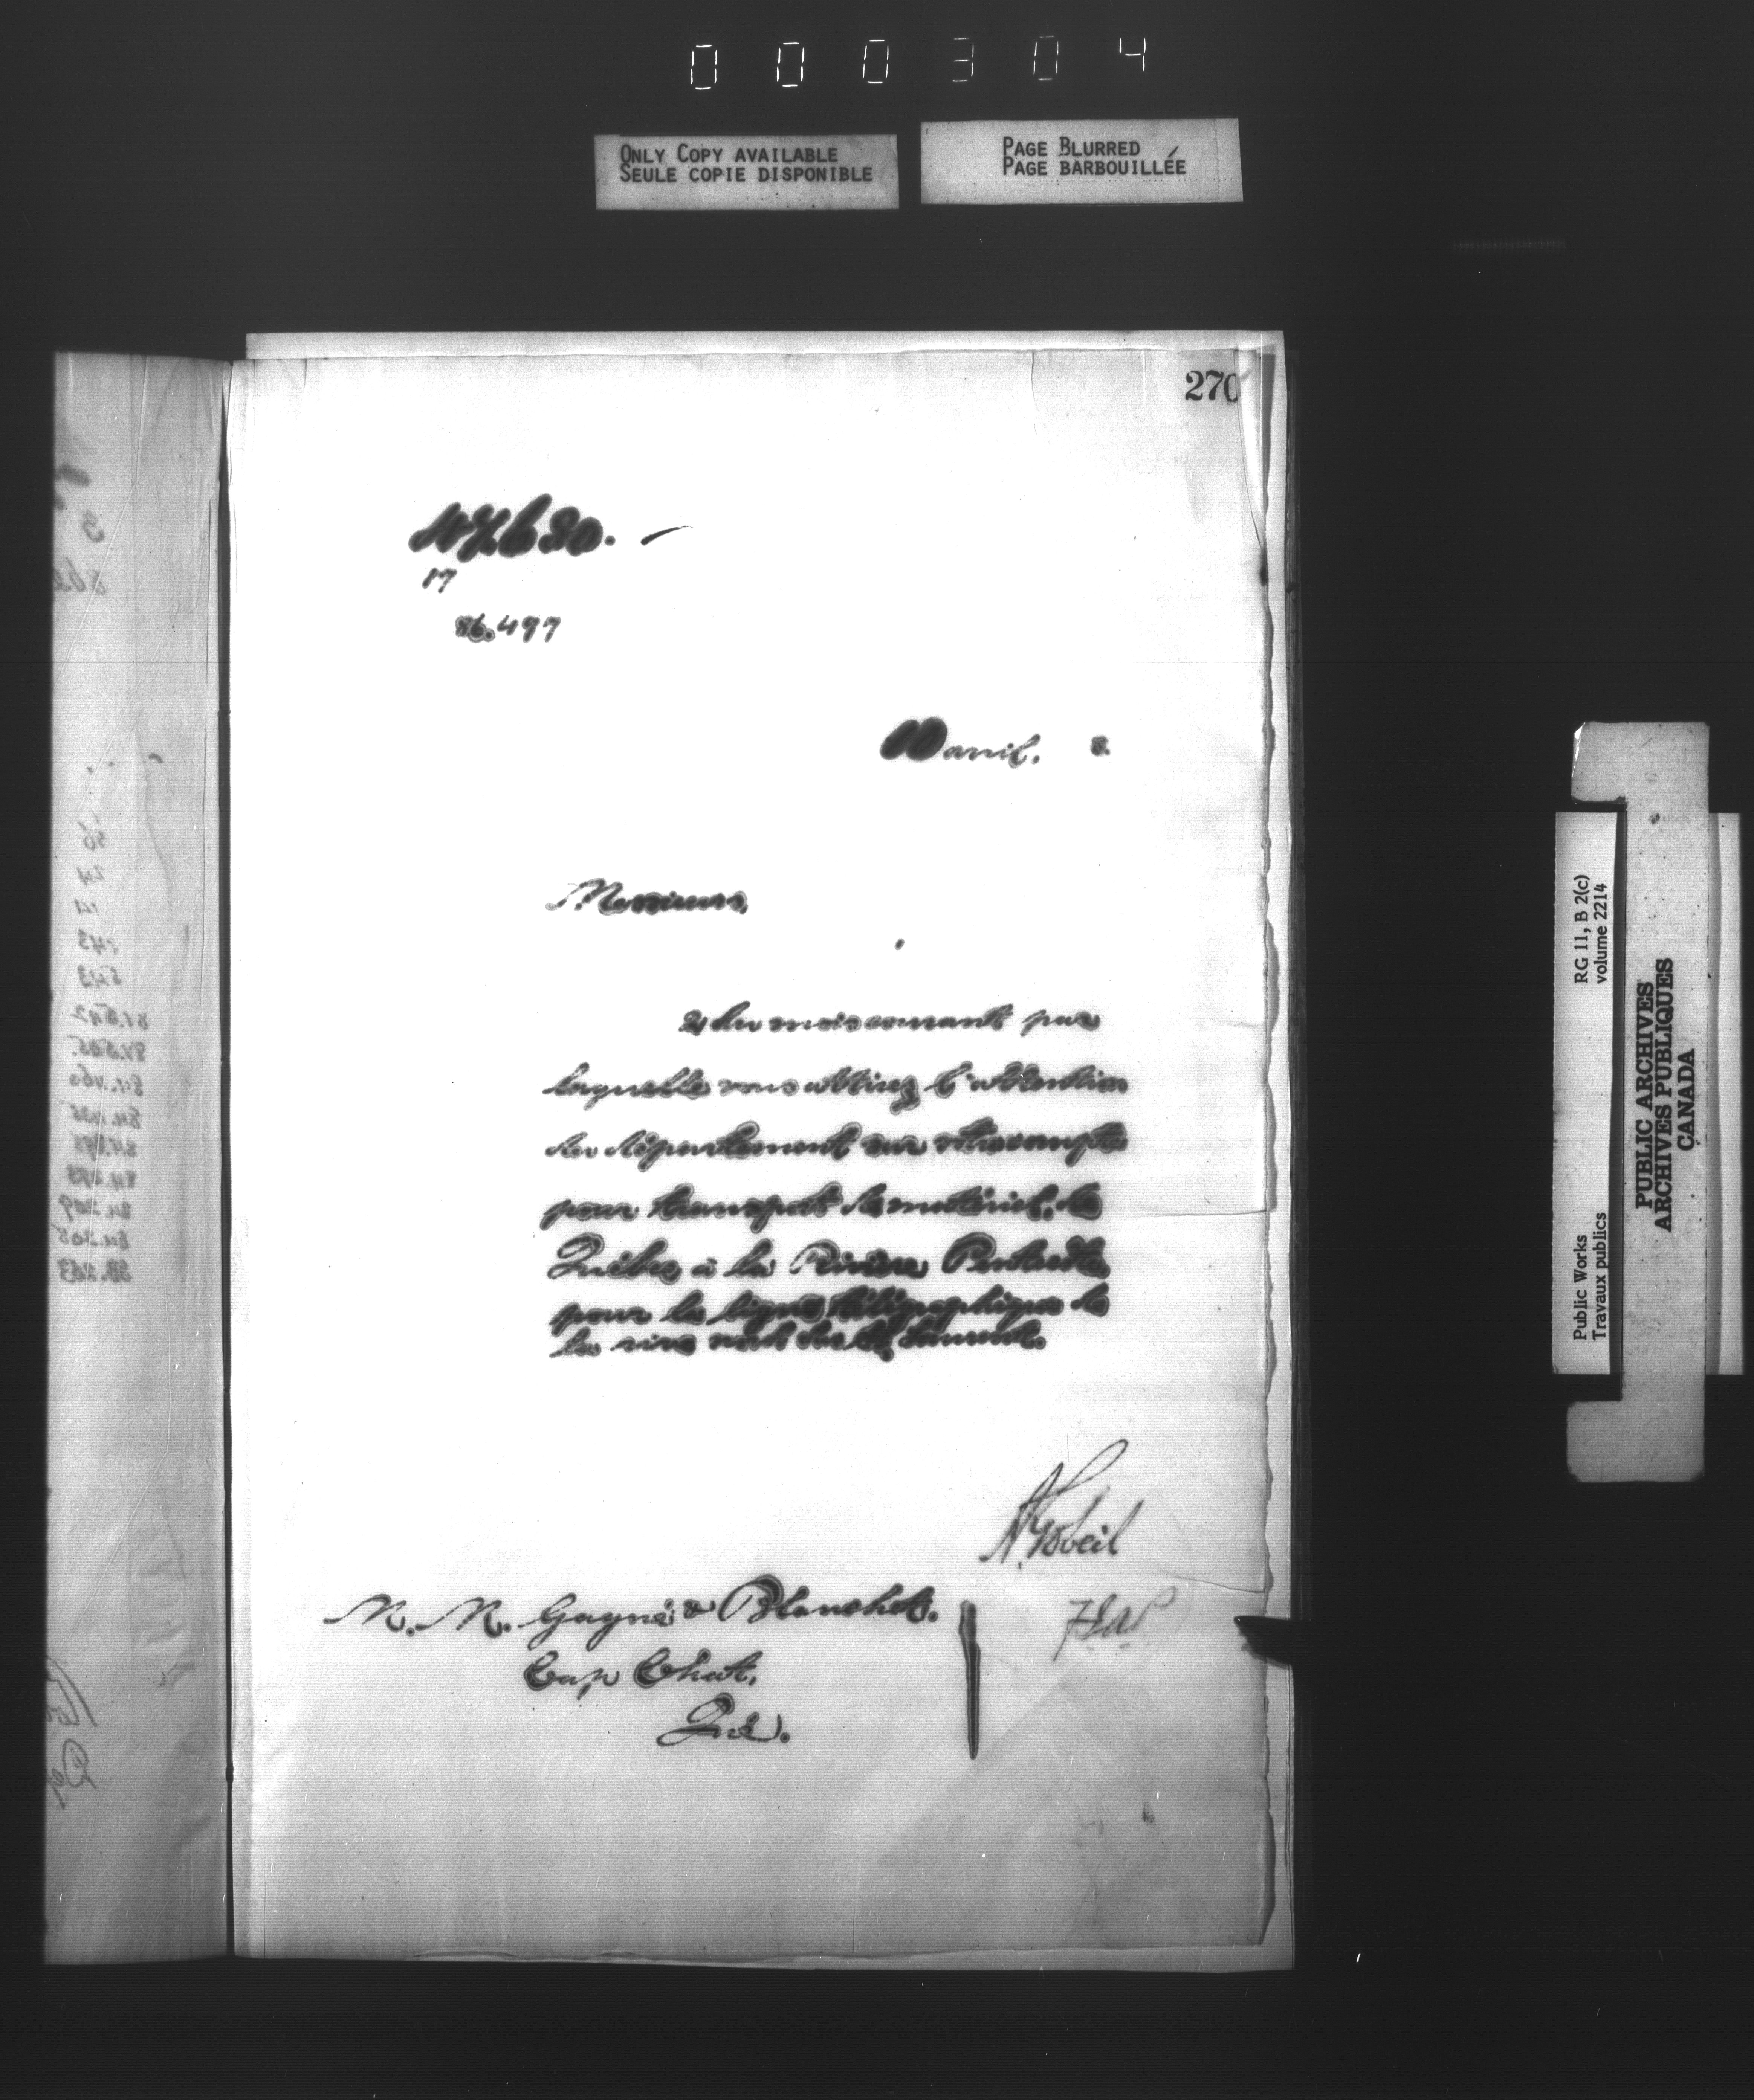 000304
ONLY COPY AVAILABLE
SEULE COPIE DISPONIBLE
PAGE BLURRED
PAGE BARBOUILLÉE
270
17
86.497
avril. 8
Messieurs,
2 du mois courant par
laquelle vous attirez l'attention
du département sur votre compte
pour transport de matériel, de
Québec à la Rivière Pentecôte
pour la ligne télégraphique de
la rive nord du St. Laurent.
A. Gobeil
M. M. Gagné & Blanchet.
Cap Chat.
Qué.
RG 11, B 2(c)
volume 2214
Public Works
Travaux publics
PUBLIC ARCHIVES
ARCHIVES PUBLIQUES
CANADA